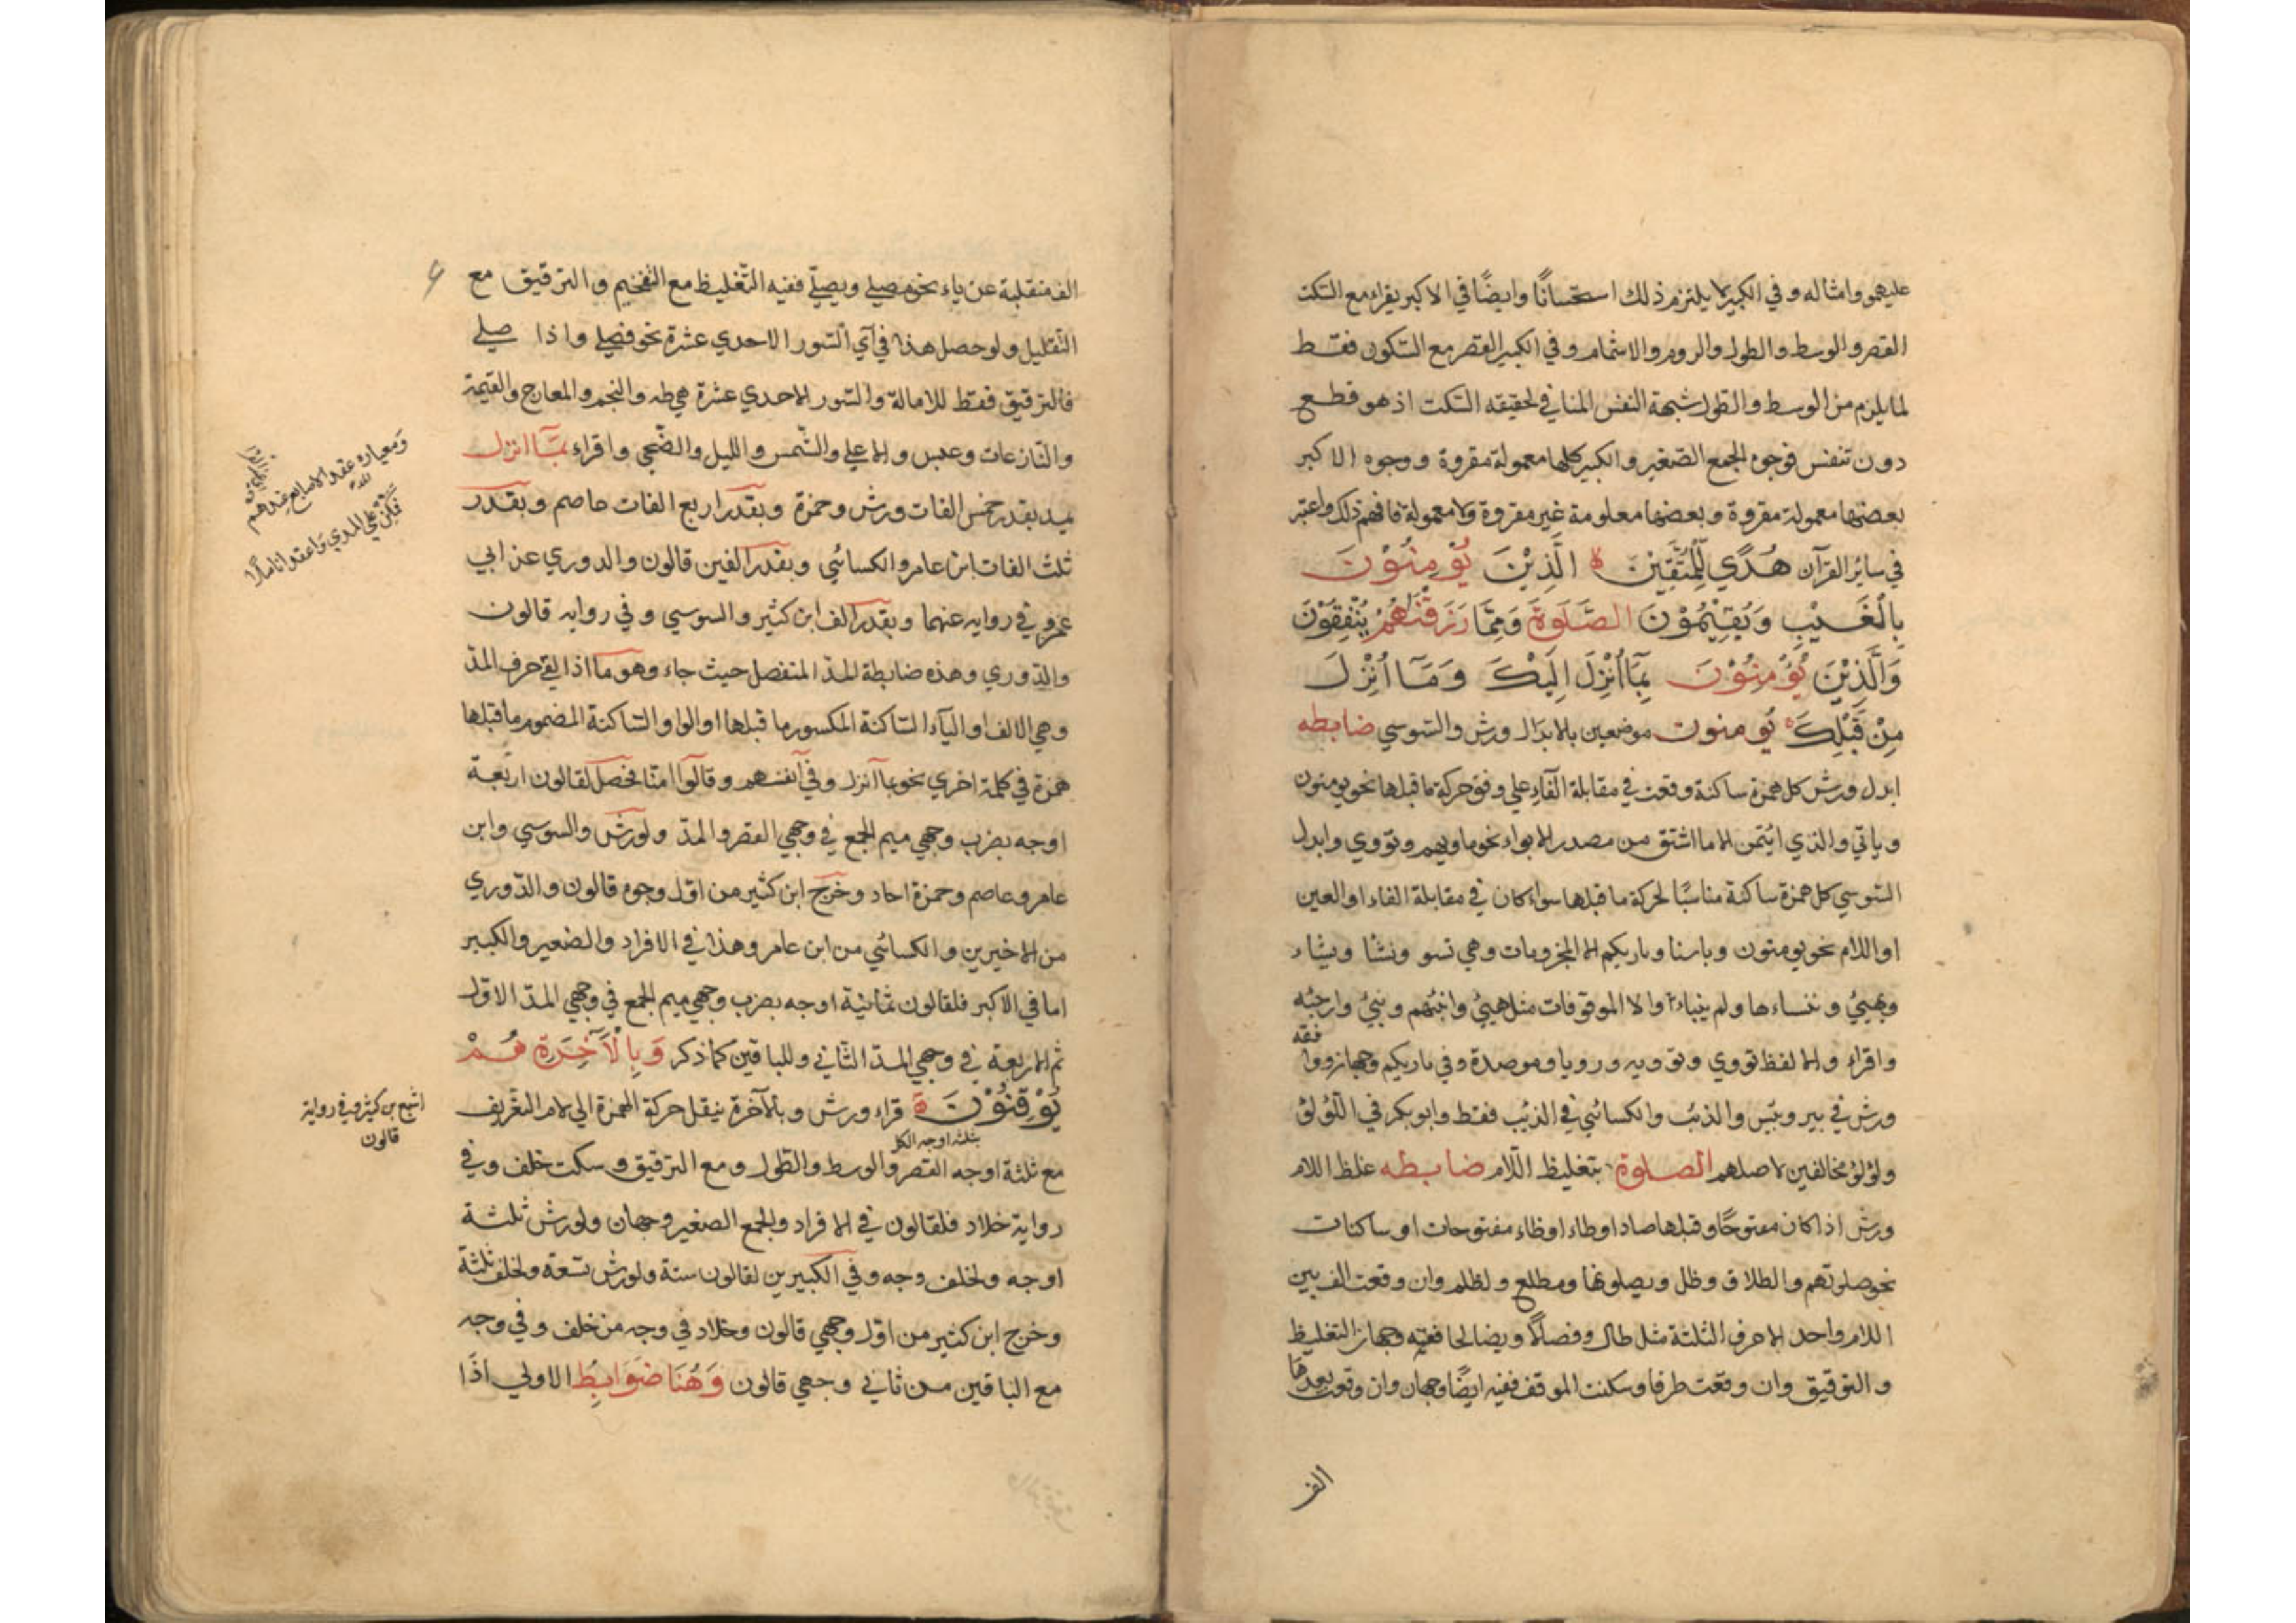 عليهمو وامثاله وفي الكبير لا يلتزم ذلك استحسانًا وايضًا في الاكبر يقراء مع السّكت
القصر والوسط والطول والروم والاشمام وفي الكبير القصر مع السّكون فقط
لما يلزم من الوسط والطول شبهة النفس المنافي لحقيقه السّكت اذ هو قطع
دون تنفس فوجوه الجمع الصّغير والكبير كلها معمولة مقروة ووجوه الاكبر
بعضها معمولة مقروة وبعضها معلومة غير مقروة ولا معمولة فافهم ذلك واعتبر
في ساير القرآن هُدًي لِلْمُتَّقِيْنَ الَّذِيْنَ يُوْمِنُوْنَ
بِالْغَيْبِ وَيُقِيْمُوْنَ الصَّلَوةَ وَمِمَّا رَزَقْنَاهُمْ يُنْفِقُوْنَ
وَالَّذِيْنَ يُوْمِنُوْنَ بِمَآ اُنْزِلَ اِلَيْكَ وَمَآ اُنْزِلَ
مِنْ قَبْلِكَ يُومنون موضعين بالابدال ورش والسّوسي ضابطه
ابدل ورش كل همزة ساكنة وقعت في مقابلة الفاء علي وفق حركة ما قبلها نحو يومنون
وياتي والذي ايتمن الا ما اشتق من مصدر الايواء نحو ماويهم وتؤوي وابدل
السّوسي كل همزة ساكنة مناسبًا لحركة ما قبلها سواء كان في مقابلة الفاء او العين
او اللام نحو يومنون وبارنا وباريكم الا المجزومات وهي تسو ونشا ويشاء
ويهييُ وننساءها ولم ينباء والا الموقوفات مثل هييُ وانبئهم ونبيُ وارجئه
واقراء والا لفظ تووي وتوويه ورويا وموصدة وفي باريكم وجهان ووافقه
ورش في بير وبئس والذئب والكسائي في الذئب فقط وابو بكر في اللّؤلؤ
ولؤلؤ مخالفين لاصلهم الصلوة بتغليظ اللّام ضابطه غلظ اللام
ورش اذا كان مفتوحًا وقبلها صاد او طاء او ظاء مفتوحات او ساكنات
نحو صلوتهم والطلاق وظل ويصلونها ومطلع ولظلم وان وقعت الف بين
اللام واحد الاحرف الثلثة مثل طال وفصالا ويصالحا ففيه وجهان التغليظ
والترقيق وان وقعت طرفا وسكنت للوقف ففيه ايضًا وجهان وان وقعت بعدها
الف
الف منقلبة عن ياء نحو مصلي ويصلّي ففيه التّغليظ مع التّفخيم والترقيق مع
التّقليل ولو حصل هذا في آي السّور الاحدي عشرة نحو فصلي واذا صلي
فالترقيق فقط للامالة والسّور الاحدي عشرة هي طه والنجم والمعارج والقيمة
والنّازعات وعبس والاعلي والشّمس والليل والضّحي واقراء بمَآ انزل
بمد بقدر خمس الفات ورش وحمزة وبقدر اربع الفات عاصم وبقدر
ثلث الفات ابن عامر والكسائي وبقدر الفين قالون والدوري عن ابي
عمرو في روايه عنهما وبقدر الف ابن كثير والسوسي وفي روايه قالون
والدّوري وهذه ضابطة المدّ المنفصل حيث جاء وهو ما اذا لقي حرف المدّ
وهي الالف او الياء السّاكنة المكسور ما قبلها او الواو السّاكنة المضموم ما قبلها
همزة في كلمة اخري نحو بمآ انزل وفي انفسهم وقالوا امنّا فحصل لقالون اربعة
اوجه بضرب وجهي ميم الجمع في وجهي القصر والمدّ ولورش والسوسي وابن
عامر وعاصم وحمزة احاد وخرج ابن كثير من اوّل وجوه قالون والدّوري
من الاخيرين والكسائي من ابن عامر وهذا في الافراد والصغير والكبير
اما في الاكبر فلقالون ثمانية اوجه بضرب وجهي ميم الجمع في وجهي المدّ الاوّل
ثم الاربعة في وجهي المدّ الثّاني وللباقين كما ذكر وَبِالْآخِرَةِ هُمْ
يُوْقِنُوْنَ قراء ورش وبالآخرة بنقل حركة الهمزة الي لام التعريف
بثلثه اوجه الكل
مع ثلثة اوجه القصر والوسط والطّول ومع الترقيق وسكت خلف وفي
رواية خلاد فلقالون في الافراد والجمع الصغير وجهان ولورش ثلثة
اوجه ولخلف وجه وفي الكبيرين لقالون ستة ولورش تسعة ولخلف ثلثة
وخرج ابن كثير من اوّل وجهي قالون وخلاد في وجه من خلف وفي وجه
مع الباقين من ثاني وجهي قالون وَهُنَا ضَوَابِطُ الاولي اذَا
ومعياره عقد الاصابع عندهم
فكن علي المدي واعقد اناملا
اشبع بن كثير وفي رواية
قالون